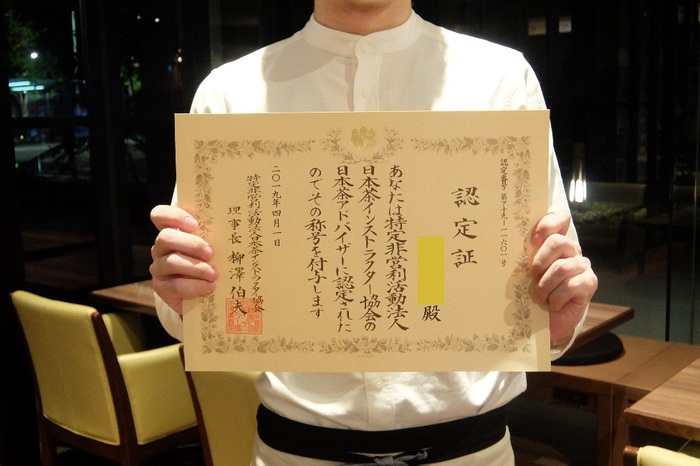 認定証
殿
あなたは特定非営利活動法人
日本茶インストラクター協会の
日本茶アドバイザーに認定された
のでその称号を付与します
二〇一九年四月一日
特定非営利活動法人日本茶インストラクター協会
理事長 柳澤伯夫